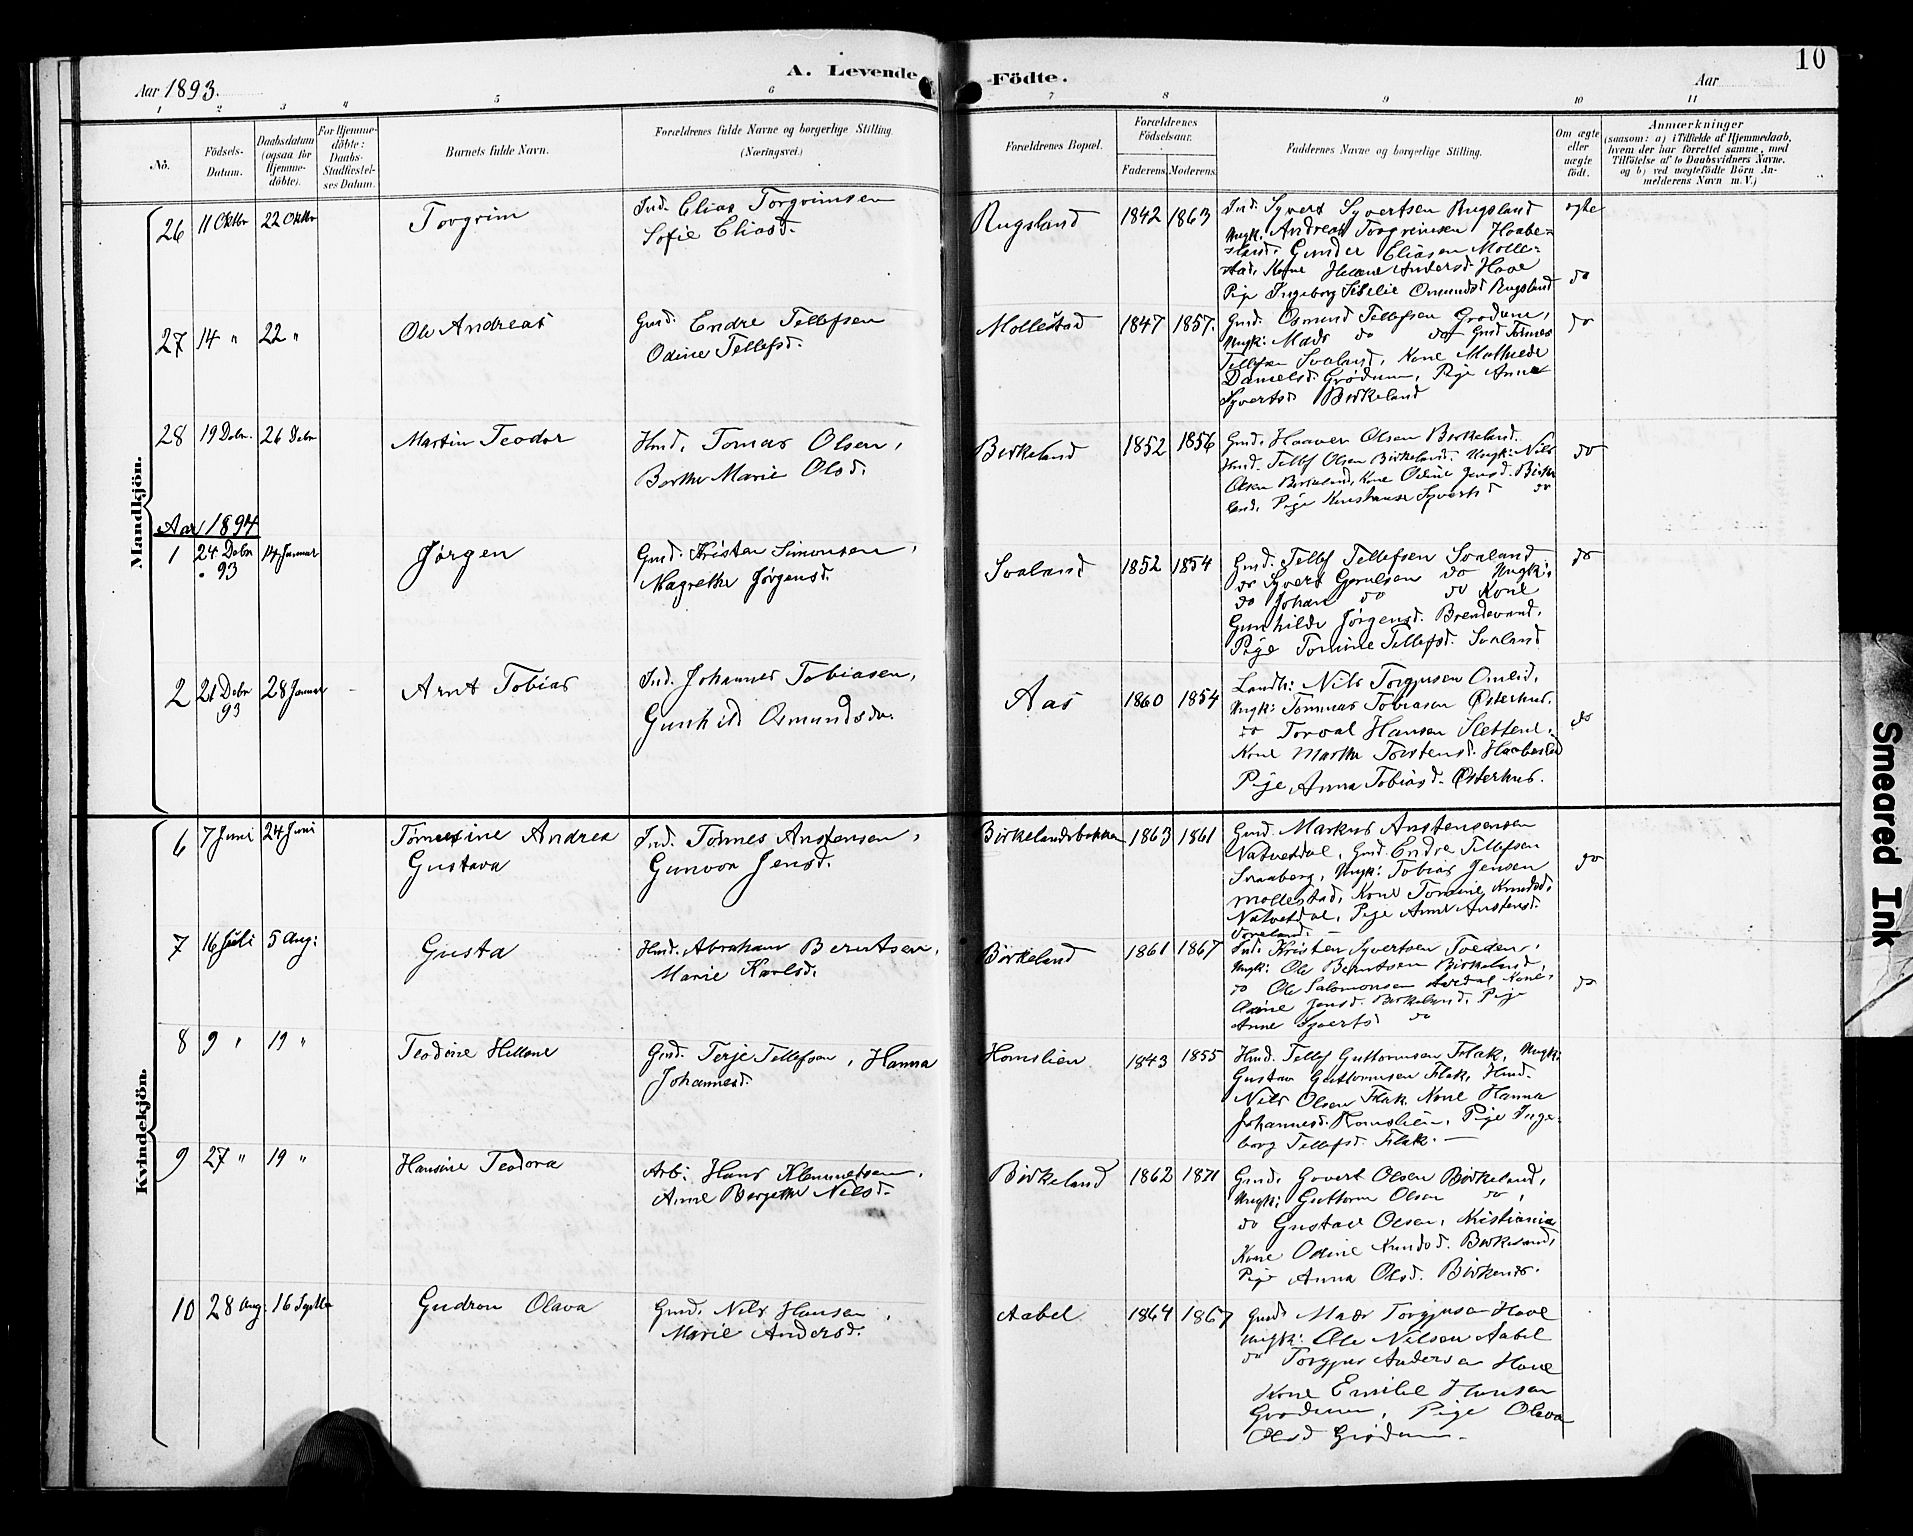 10
A. Levende Födte.
Aar 1893.
Aar
1 2 3 4 5 6 7 8 9 10 11
No.
Födsels-Datum.
Daabsdatum (ogsaa for Hjemme-döbte).
For Hjemme-döbte: Daabs-Stadfæstel-ses Datum.
Barnets fulde Navn.
Forældrenes fulde Navne og borgerlige Stilling. (Næringsvei.)
Forældrenes Bopæl.
Forældrenes Födselsaar.
Faderens Moderens
Faddernes Navne og borgerlige Stilling.
Om ægte eller uægte födt.
Anmærkninger
(saasom: a) i Tilfælde af Hjemmedaab, hvem der har forrettet samme, med Tilföielse af to Daabsvidners Navne. og b) ved uægtefödte Börn An-melderens Navn m. V.)
Mandkjön.
26 11 Oktbr 22 Oktbr Torgrim
Ind. Elias Torgrimsen
Sofie Eliasd.
Rugsland 1842 1863
Ind. Syvert Syvertsen Rugsland
Ungk. Andreas Torgrimsen Haabe-
stad. Gunder Eliasen Molle-
stad, Kone Helene Andersd. Hove
Pige Ingeborg Sibelie Osmundsd Rugsland
ægte
do
27 14 " 22 " Ole Andreas
Gmd. Endre Tellefsen
Odine Tellefsd.
Mollestad 1847 1857.
Gmd. Osmund Tellefsen Grødum,
Ungk: Mads do do Gmd Tønnes
Tellefsen Svaland, Kone Mathilde
Danielsd. Grødum, Pige Anne
Syvertsd Birkeland
do
28 19 Debr. 26 Debr Martin Teodor
Hmd. Tomas Olsen,
Berthe Marie Olsd.
Birkeland 1852 1856
Gmd. Haaver Olsen Birkeland.
Hmd. Tellef Olsen Birkeland. Ungk: Nils
Olsen Birkeland, Kone Odine Jensd. Birke
land, Pige Syvertsd do
do
Aar 1894
1 24 Debr 93 14 Januar Jørgen
Gmd. Kristen Simonsen,
Magrethe Jørgensd.
Svaland 1852 1854
Gmd. Tellef Tellefsen Svaland
do Syvert do Ungk:
do Johan do do Kone
Gunhilde Jørgensd. Brendevand,
Pige Tomine Tellefsd. Svaland
do
2 21 Debr 93 28 Januar - Arnt Tobias
Ind. Johannes Tobiasen,
Gunhild Osmundsdr.
Aas 1860 1854
Landh: Nils Torgjusen Omlid,
Ungk: Tommas Tobiasen Østerhus.
do Torval Hansen Sletten.
Kone Marthe Torstensd. Haabestad
Pige, Anna Tobiasd. Østerhus.
do
Kvindekjön.
6 7 Juni 24 Juni Tømesine Andrea
Gustava
Ind. Tønnes Anstensen,
Gunvor Jensd.
Birkelandsbakken 1863 1861
Gmd. Markus Anstensensen
Natvetdal, Gmd. Endre Tellefsen
Snaaberg, Ungk: Tobias Jensen
Mollestad, Kone Tomine Knudsd.
Natvetdal, Pige Anne Anstensd.
do
7 16 Juli 5 Aug: Gusta
Hmd. Abraham Berntsen,
Marie Karlsd.
Birkeland 1861 1867
Ind. Kristen Syvertsen Tveden,
Ungk: Ole Berntsen Birkeland,
do Ole Salomonsen Kone,
Odine Jensd. Birkeland, Pige
Anne Syvertsd do
do
8 9 " 19 " Teodine Hellene
Gmd. Terje Tellefsen, Hanna
Johannesd.
Homslien 1843 1855
Hmd. Tellef Guttormsen Flak, Ungk:
Gustav Guttormsen Flak, Hmd.
Nils Olsen Flak, Kone Hanna
Johannesd. Homslien, Pige Inge-
borg Tellefsd. Flak. -
9 27 " 19 " Hansine Teodora
Arb: Hans Klemmetsen,
Anne Bergethe Nilsd.
Birkeland 1862 1871
Gmd. Govert Olsen Birkeland,
Ungk: Guttorm Olsen do,
do Gustav Olsen, Kristiania
Kone Odine Knudsd. Birkeland,
Pige Anna Olsd. Birkeland.
10 28 Aug. 16 Septbr Gudron Olava
Gmd. Nils Hansen,
Marie Andersd.
Aabel 1864 1867
Gmd. Mads Torgjusen Hove
Ungk: Ole Nilsen Aabel
do Torgjus Andersen Hove
Kone Emilie Hansen
Grødum, Pige Olava
Olsd Grødum.
Smeared Ink